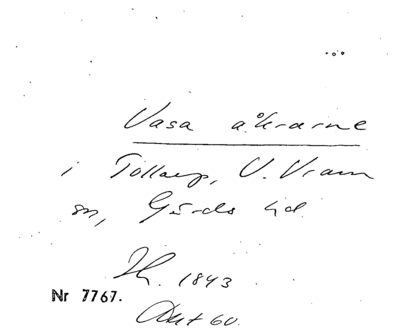 Vasa åkrarne
i Tollarp, V. Vram
sn, Gärds hd.
1843
Nr 7767.
Akt 60.